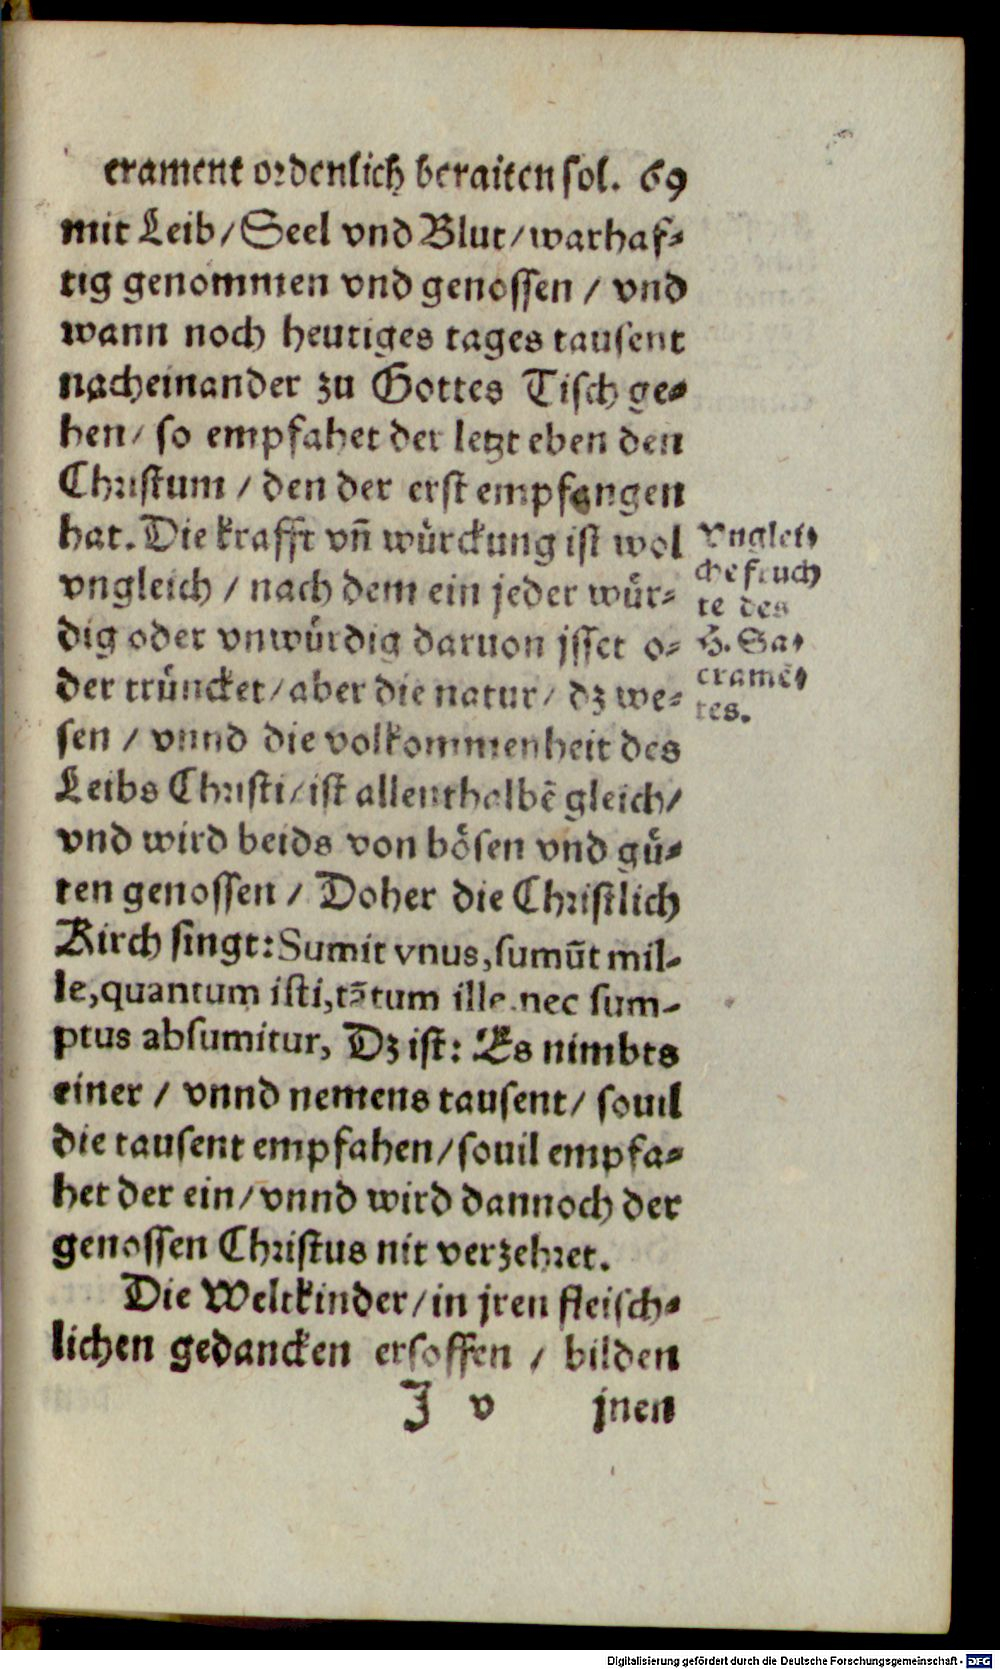 crament ordenlich beraiten sol. 69
mit Leib/Seel vnd Blut/warhaf⸗
tig genommen vnd genossen / vnd
wann noch heutiges tages tausent
nacheinander zu Gottes Tisch ge⸗
hen/ so empfahet der letzt eben den
Christum / den der erst empfangen
hat. Die krafft vn̄ wuͤrckung ist wol
vngleich / nach dem ein jeder wuͤr⸗
dig oder vnwuͤrdig daruon jsset o⸗
der truͤncket/aber die natur/ dz we⸗
sen / vnnd die volkommenheit des
Leibs Christi/ist allenthalbē gleich/
vnd wird beids von boͤsen vnd guͤ⸗
ten genossen / Doher die Christlich
Kirch singt: Sumit vnus, sumūt mil-
le, quantum isti, tātum ille nec sum-
ptus absumitur, Dz ist: Es nimbts
einer / vnnd nemens tausent/ souil
die tausent empfahen/souil empfa⸗
het der ein/vnnd wird dannoch der
genossen Christus nit verzehret.
Die Weltkinder/in jren fleisch⸗
lichen gedancken ersoffen / bilden
J v jnen
Vnglei⸗
che fruch
te des
H. Sa⸗
cramē⸗
tes.
Digitalisierung gefördert durch die Deutsche Forschungsgemeinschaft - DFG